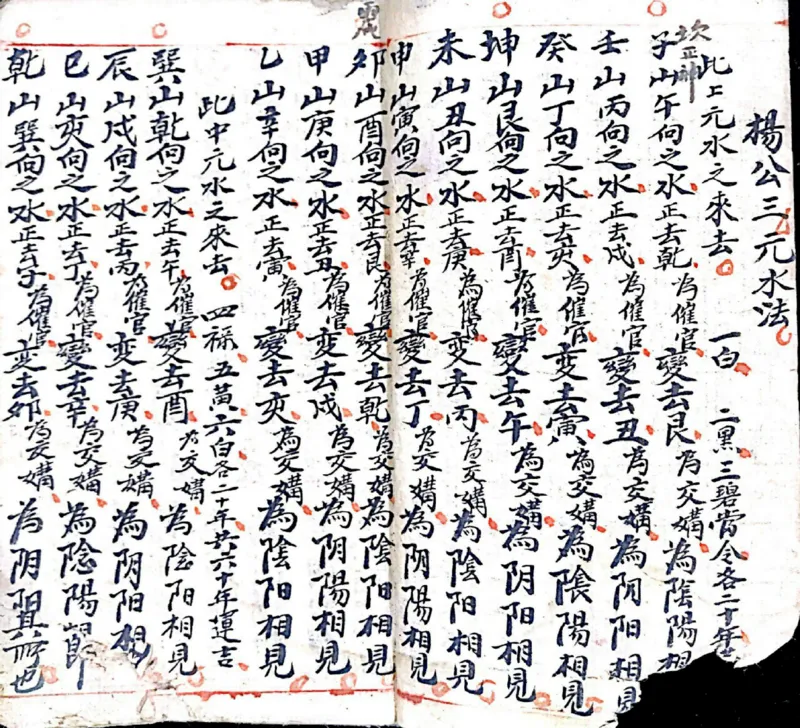 楊公三元水法
坎正神
此上元水之來去 一白 二黑 三碧當令各二十年
子山午向之水正去乾為催官變去艮為交媾為陰陽相
壬山丙向之水正去戍為催官變去丑為交媾為阴阳相見
癸山丁向之水正去亥為催官变去寅為交媾為陰陽相見
坤山艮向之水正去酉為催官變去午為交媾為阴阳相見
未山丑向之水正去庚為催官变去丙為交媾為陰阳相見
申山寅向之水正去辛為催官變去丁為交媾為阴陽相見
卯山酉向之水正去艮為催官變去乾為交媾為陰阳相見
甲山庚向之水正去丑為催官变去戍為交媾為阴陽相見
乙山辛向之水正去寅為催官變去亥為交媾為陰阳相見
此中元水之來去 四祿 五黃 六白各二十年共六十年運吉
巽山乾向之水正去午為催官變去酉為交媾為陰阳相見
辰山戍向之水正去丙為催官变去庚為交媾為阴阳相
巳山亥向之水正去丁為催官變去辛為交媾為陰陽
乾山巽向之水正去子為催官变去卯為交媾為阴阳也